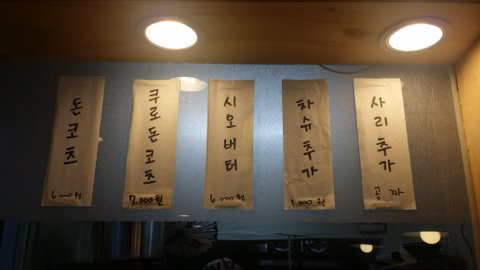 돈코츠
6.000원
쿠로돈코츠
7.000원
시오버터
6.000원
차슈추가
1.000원
사리추가
공짜